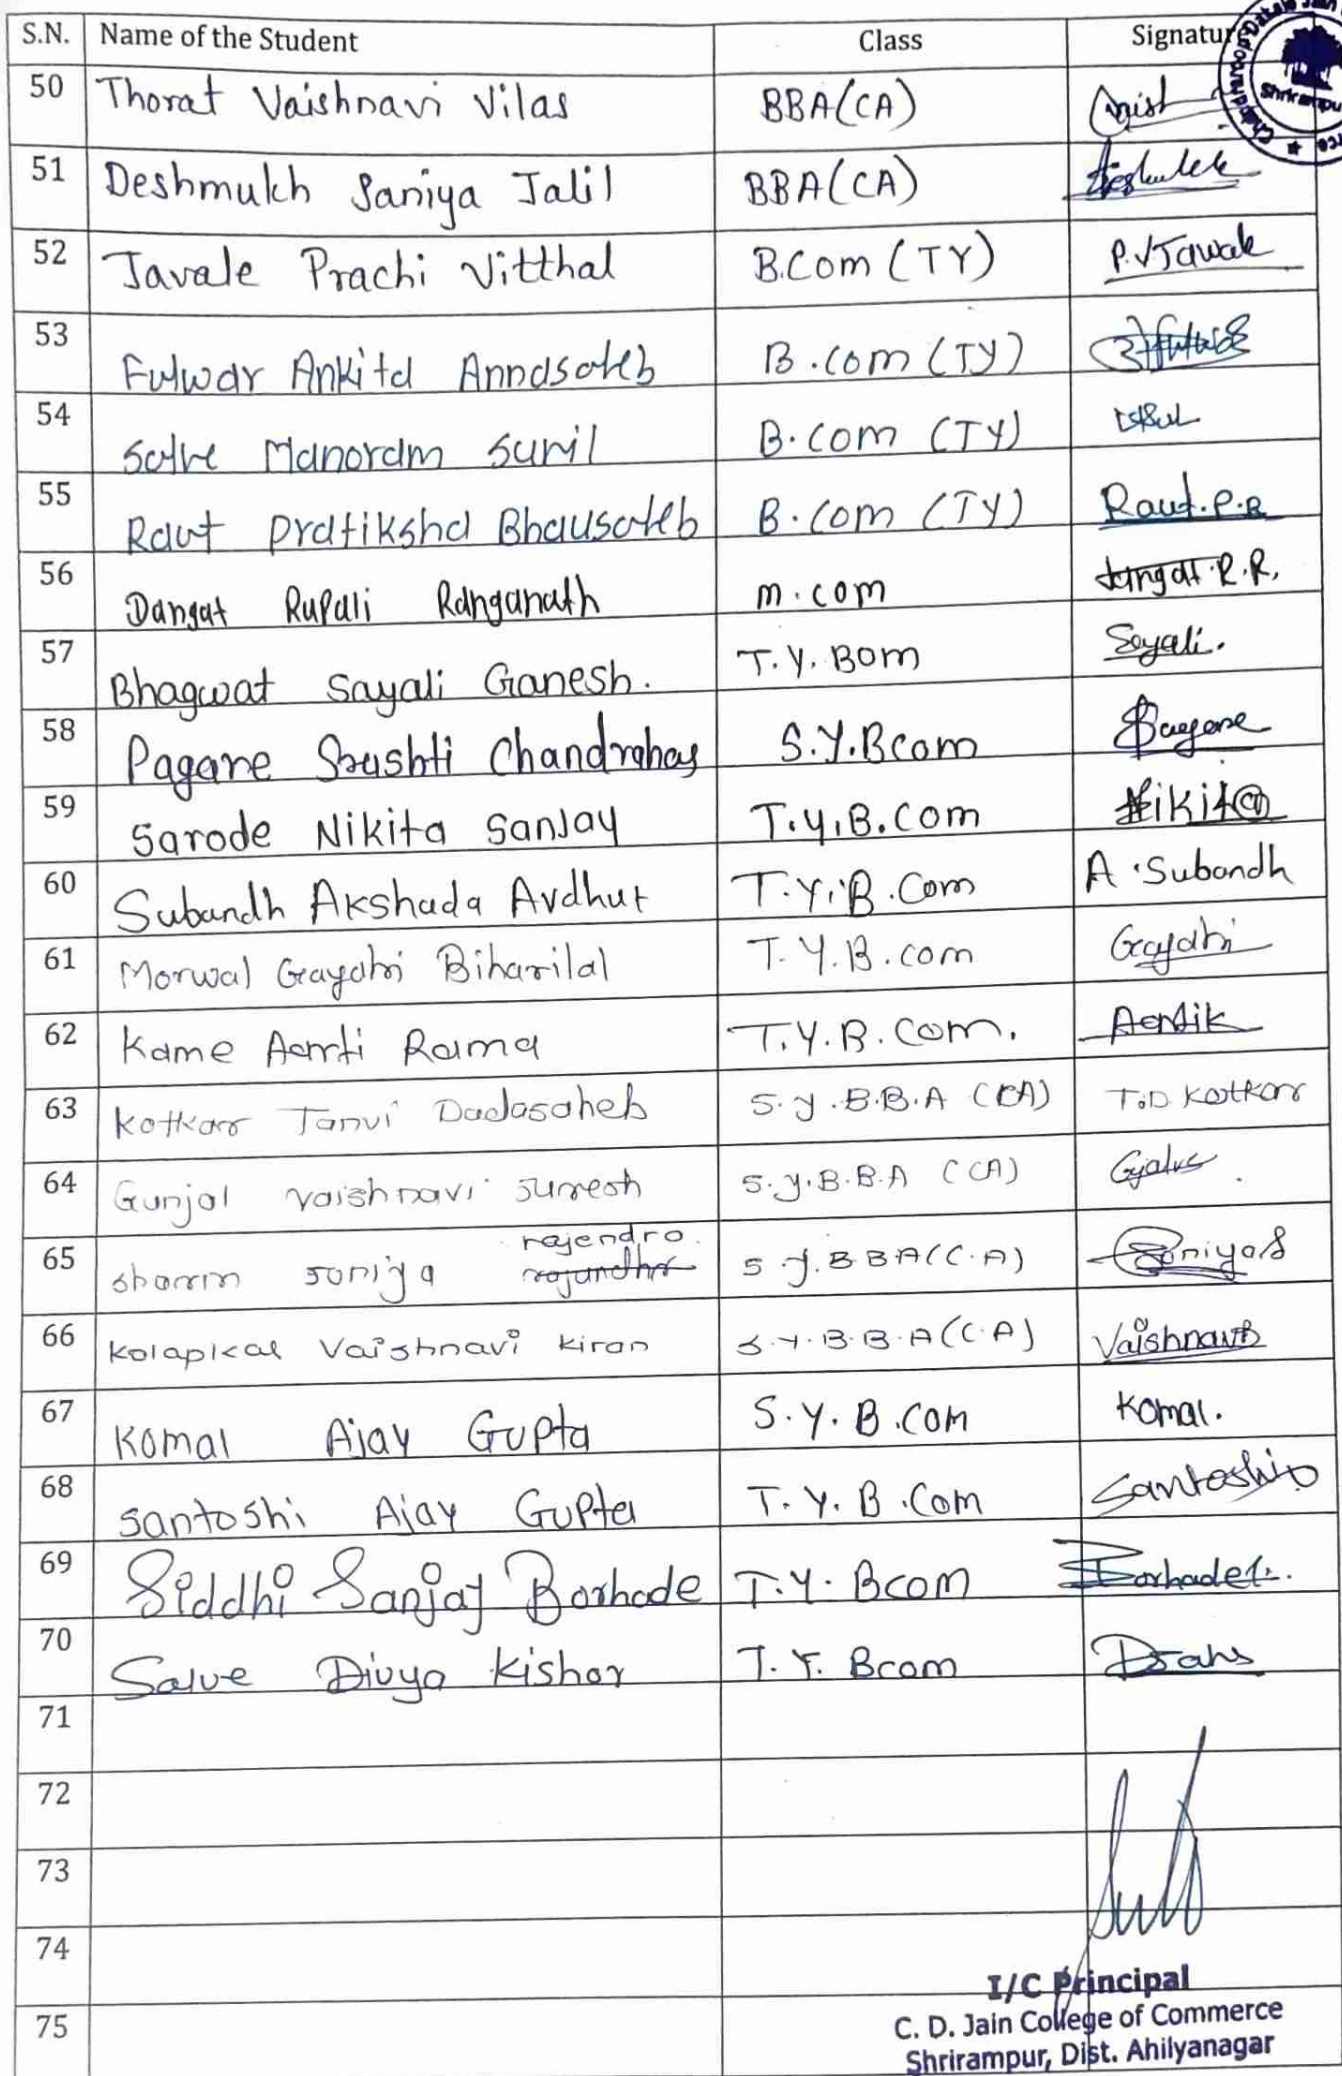 S.N. Name of the Student Class Signatur
50 Thorat Vaishnavi Vilas BBA(CA)
51 Deshmukh Saniya Jalil BBA(CA)
52 Javale Prachi Vitthal B.Com (TY) P.V Jawale
53 Fulwar Ankita Annasaheb B.com (TY)
54 Salve Manoram Sunil B.com (TY)
55 Raut Pratiksha Bhausaheb B.com (TY) Raut.P.B
56 Dangat Rupali Ranganath m.com dangat R.R.
57 Bhagwat Sayali Ganesh. T.Y. Bom Sayali.
58 Pagare Srushti Chandrahas S.Y.Bcom Pagare
59 Sarode Nikita Sanjay T.Y.B.Com Nikita
60 Subandh Akshada Avdhut T.Y.B.Com A.Subandh
61 Morwal Gayatri Biharilal T.Y.B.com Gayatri
62 Kame Aarti Rama T.Y.B.Com.
63 Kotkar Tanvi Dadasaheb S.Y.B.B.A (CA) T.D Kotkar
64 Gunjal Vaishnavi Suresh S.Y.B.B.A (CA)
rajendra
65 saniya S.Y.BBA(C.A) Saniya.S
66 Kolapkar Vaishnavi Kiran S.Y.B.B.A(C.A) Vaishnavi
67 Komal Ajay Gupta S.Y.B.Com Komal.
68 Santoshi Ajay Gupta T.Y.B.Com Santoshi
69 Siddhi Sanjay Borhade T.Y.Bcom
70 Salve Divya Kishor T.Y.Bcom
71
72
73
74
75
I/C Principal
C. D. Jain College of Commerce
Shrirampur, Dist. Ahilyanagar